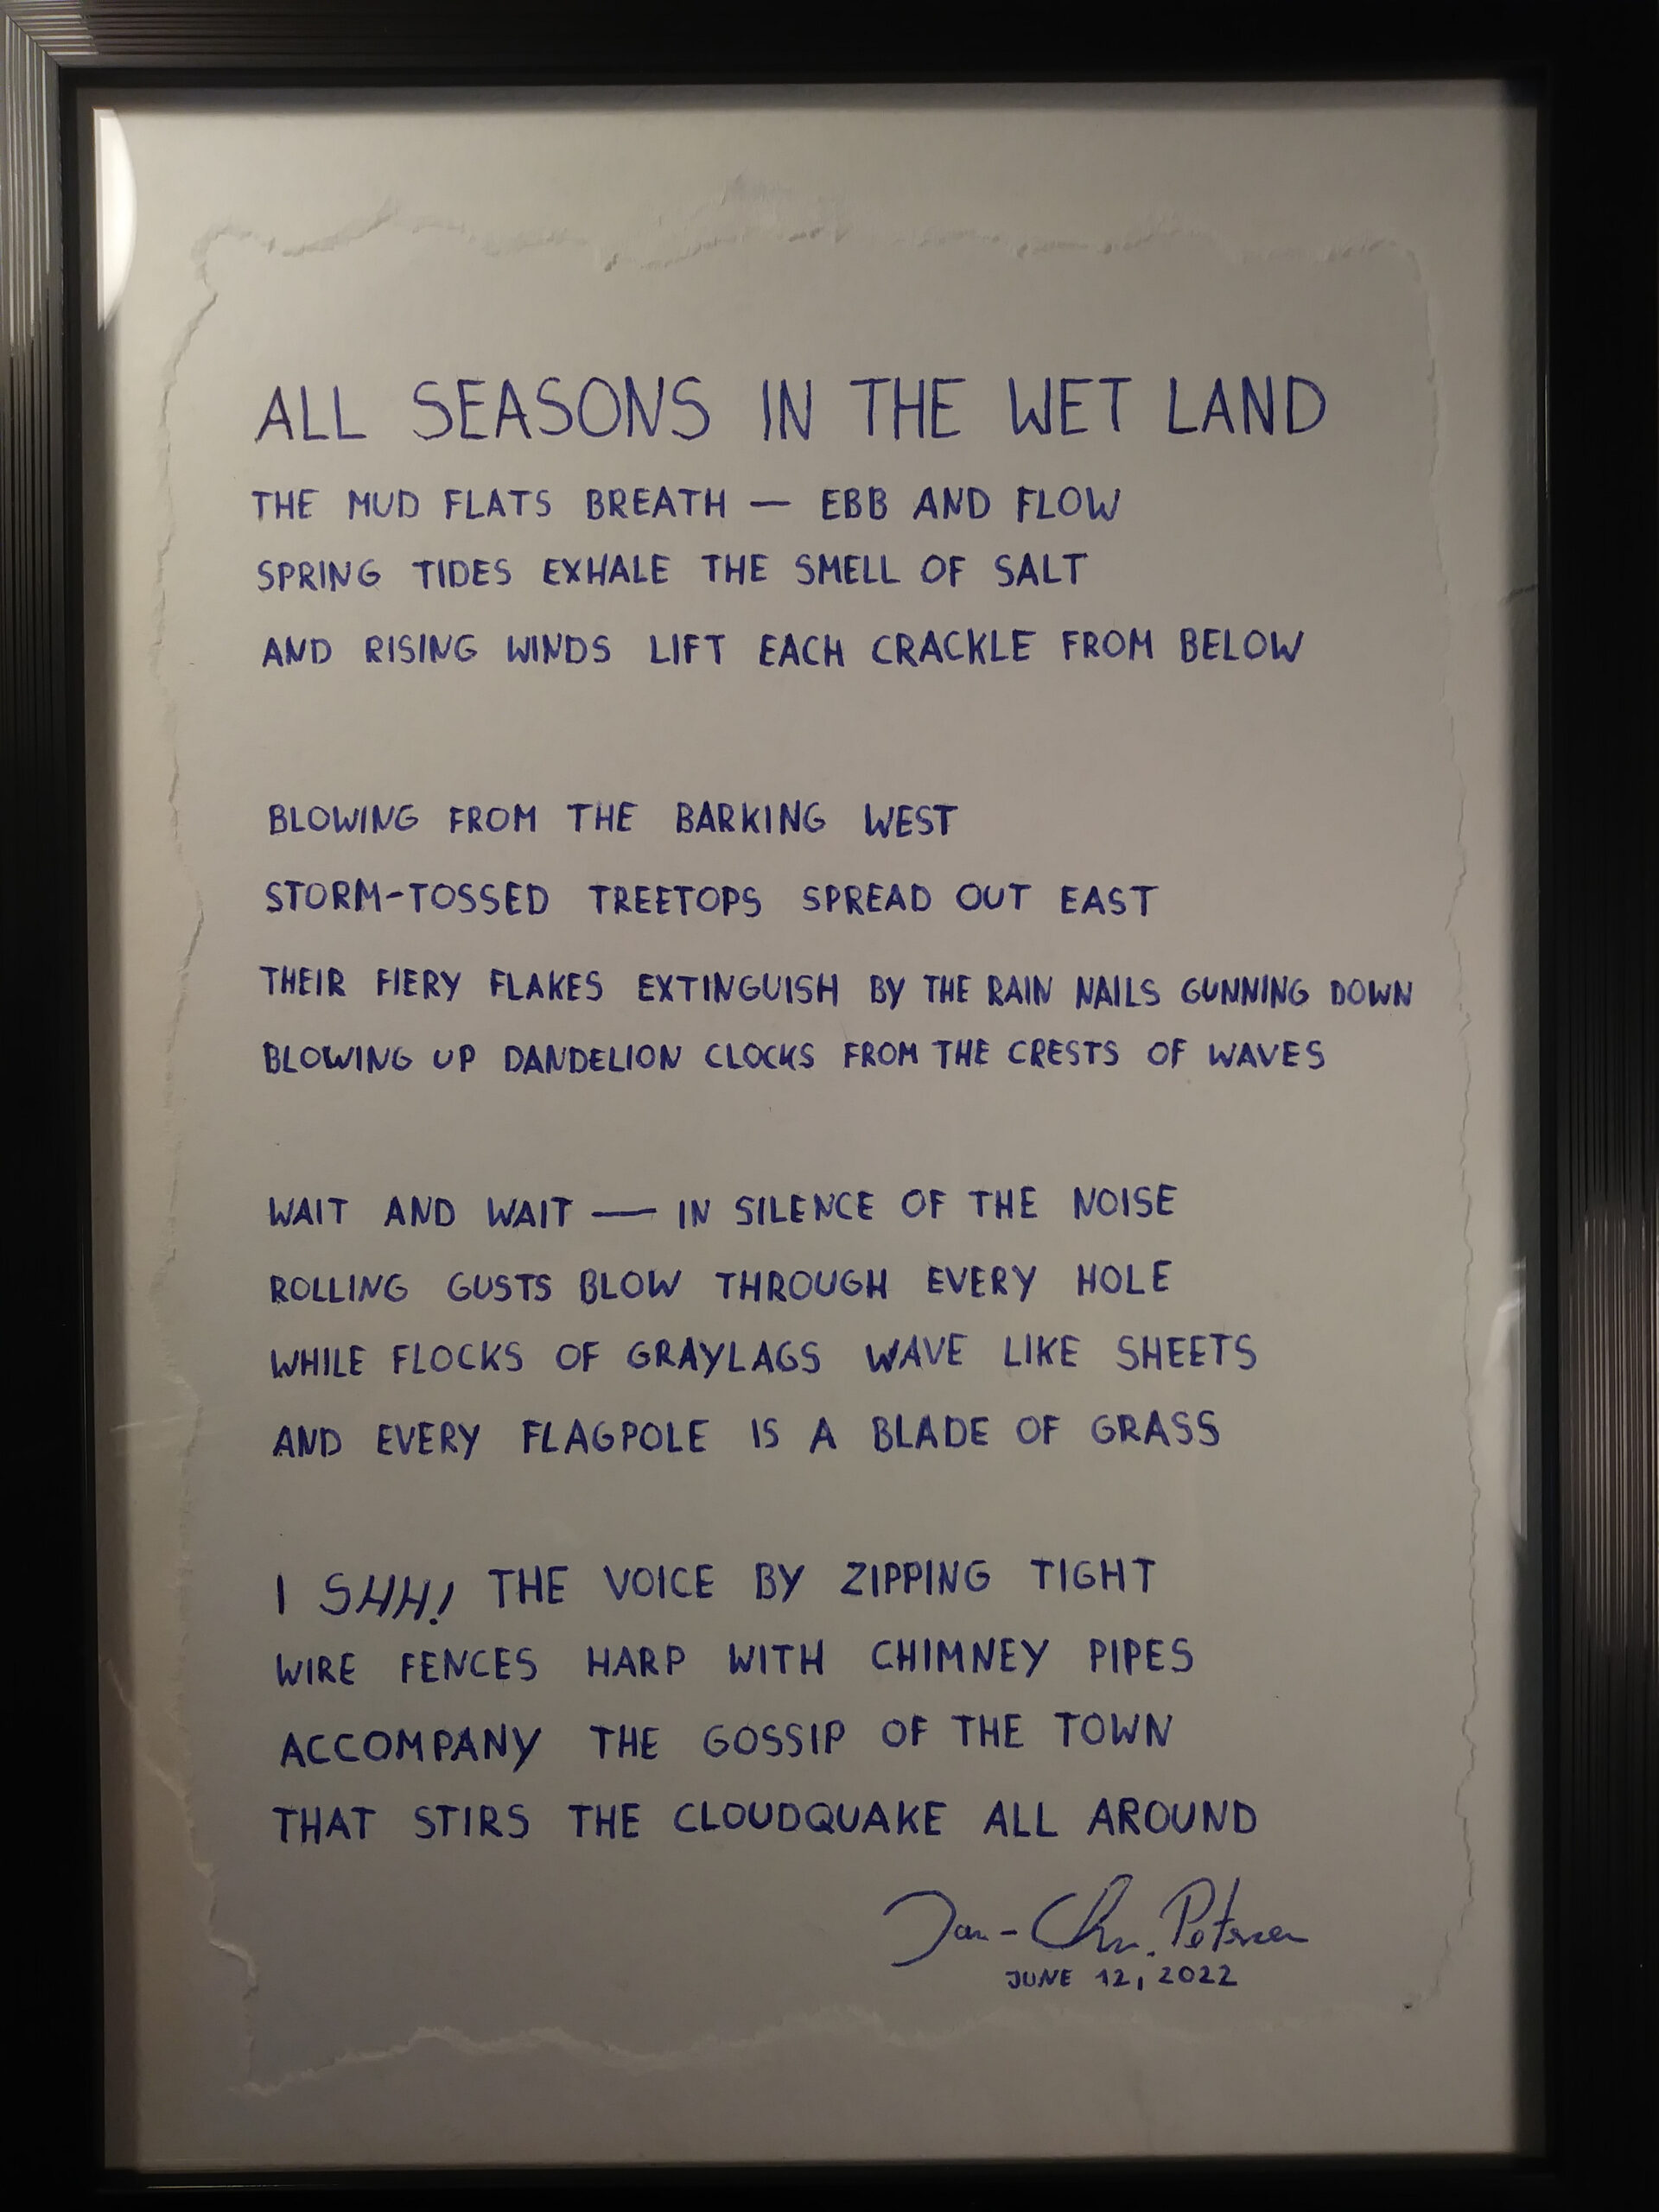 ALL SEASONS IN THE WET LAND
THE MUD FLATS BREATH — EBB AND FLOW
SPRING TIDES EXHALE THE SMELL OF SALT
AND RISING WINDS LIFT EACH CRACKLE FROM BELOW
BLOWING FROM THE BARKING WEST
STORM-TOSSED TREETOPS SPREAD OUT EAST
THEIR FIERY FLAKES EXTINGUISH BY THE RAIN NAILS GUNNING DOWN
BLOWING UP DANDELION CLOCKS FROM THE CRESTS OF WAVES
WAIT AND WAIT — IN SILENCE OF THE NOISE
ROLLING GUSTS BLOW THROUGH EVERY HOLE
WHILE FLOCKS OF GRAYLAGS WAVE LIKE SHEETS
AND EVERY FLAGPOLE IS A BLADE OF GRASS
I SHH! THE VOICE BY ZIPPING TIGHT
WIRE FENCES HARP WITH CHIMNEY PIPES
ACCOMPANY THE GOSSIP OF THE TOWN
THAT STIRS THE CLOUDQUAKE ALL AROUND
Jan-Chr. Petersen
JUNE 12, 2022